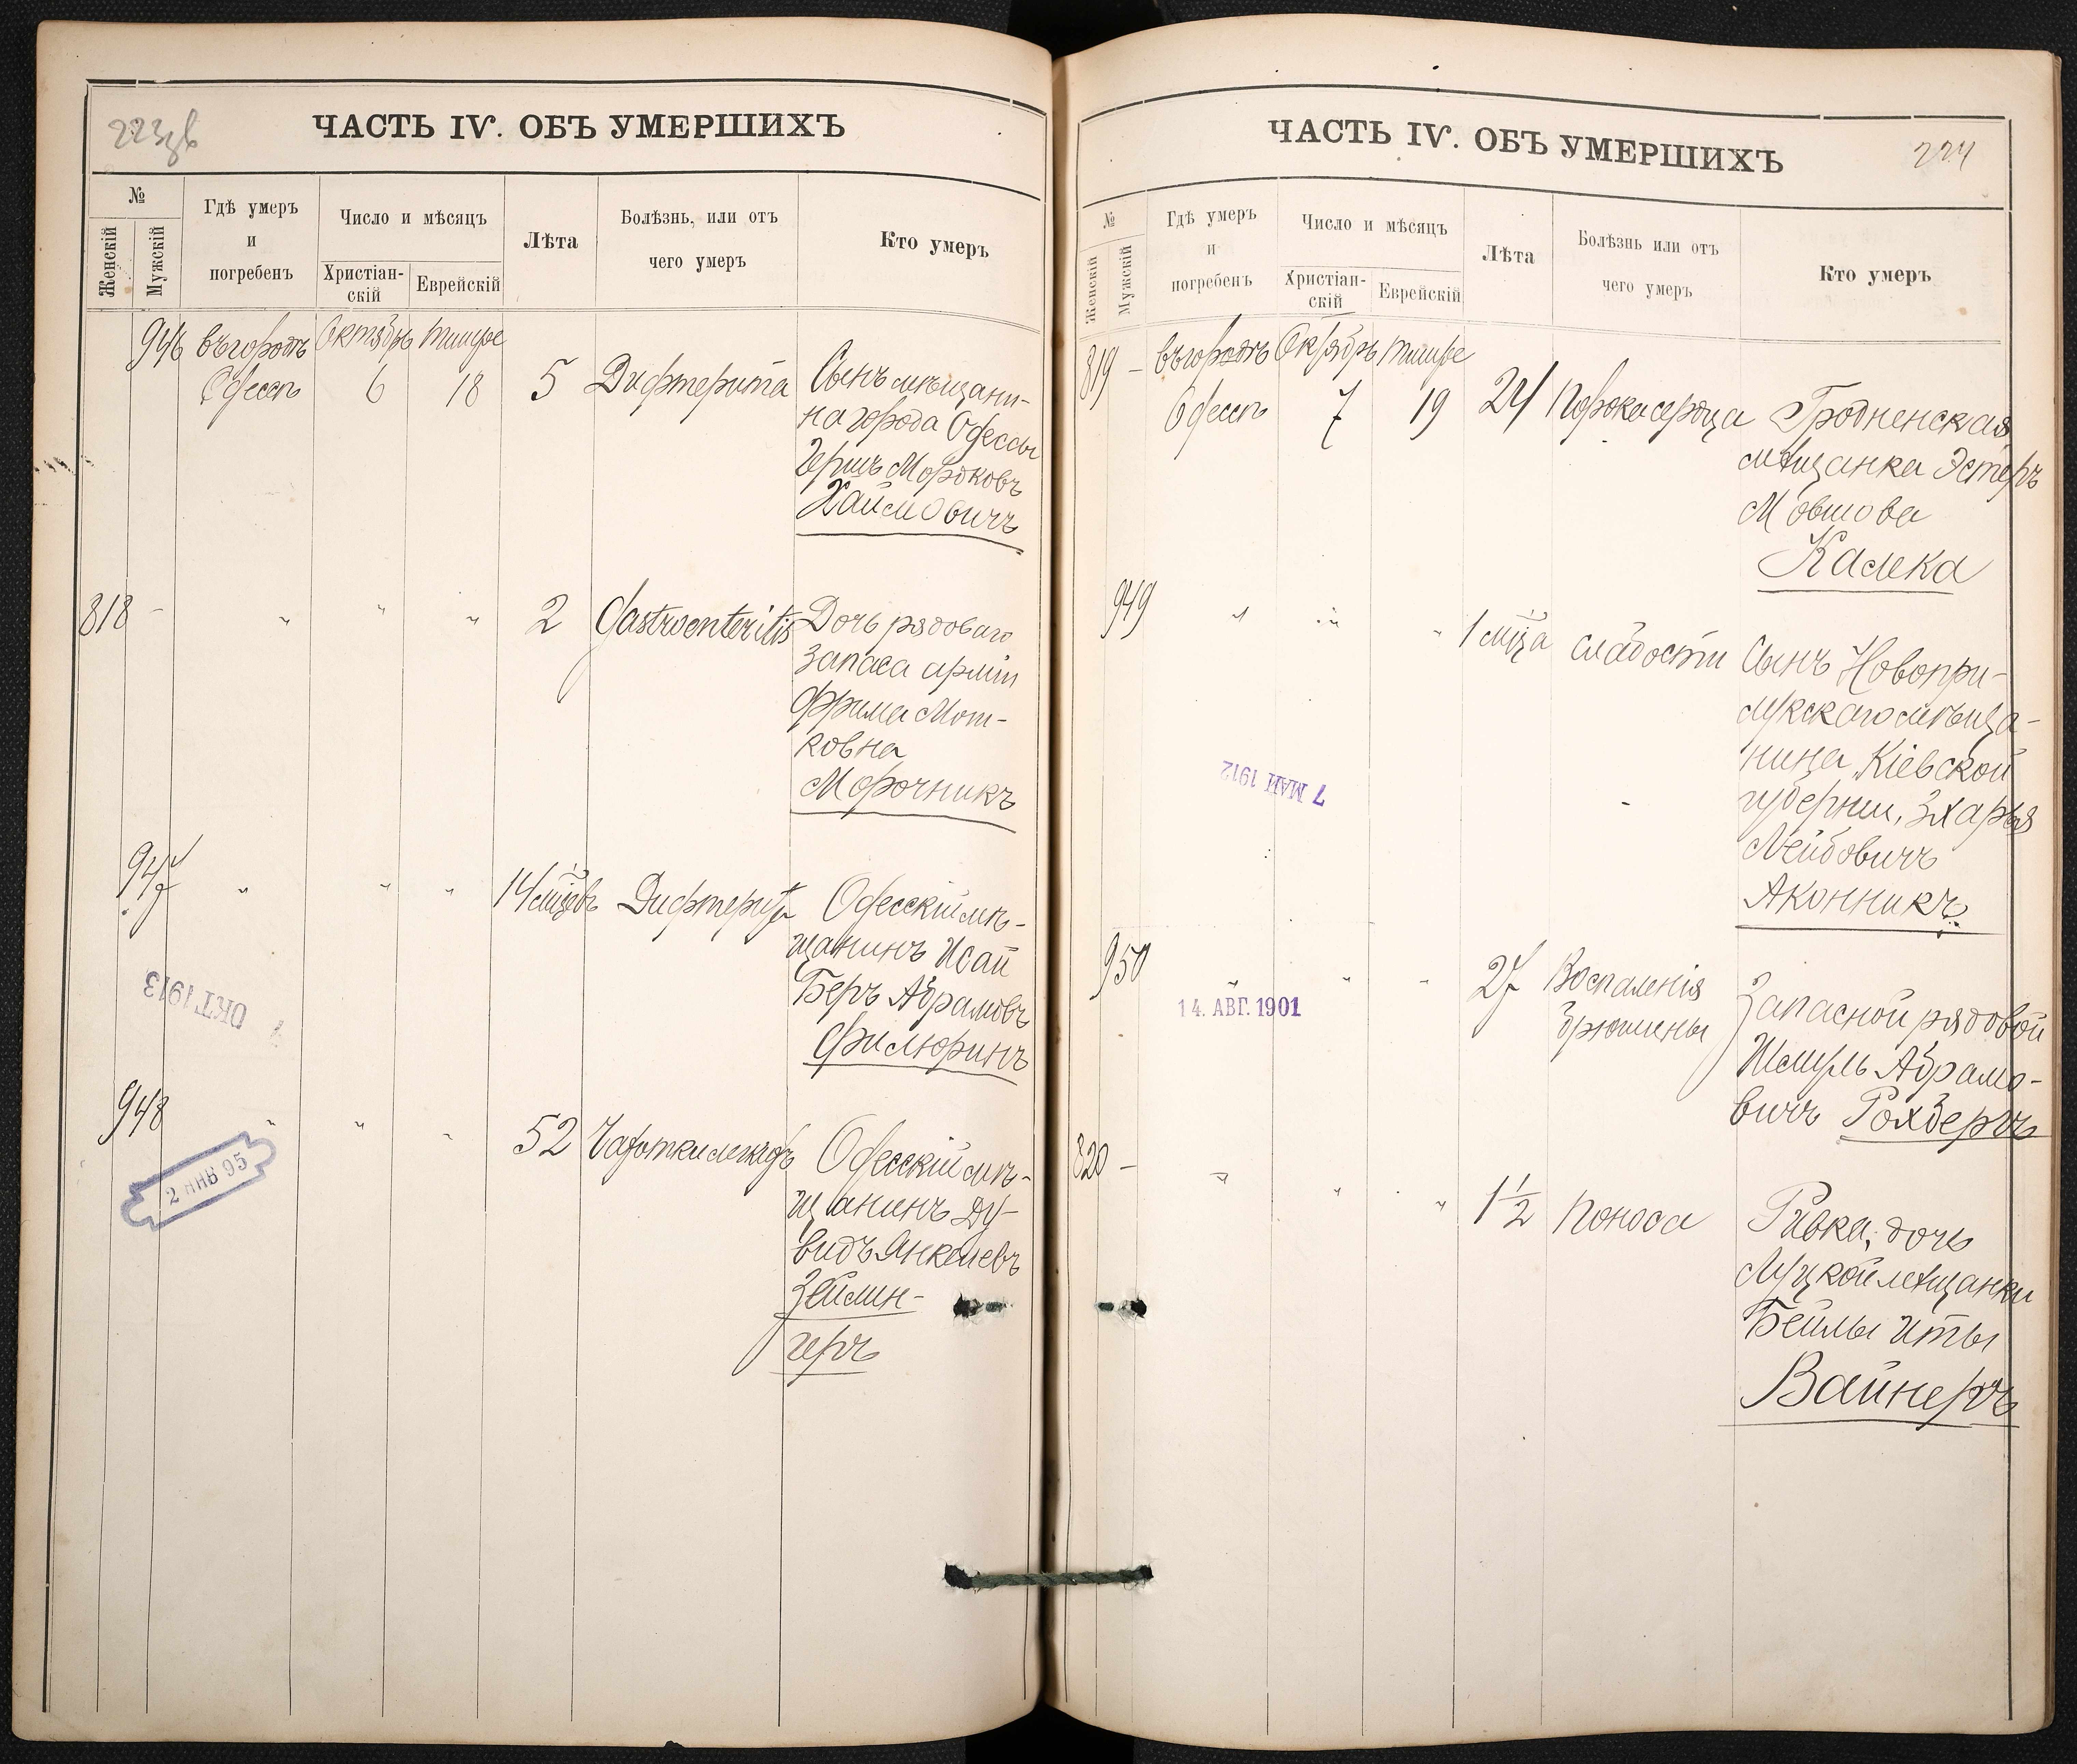 223 об
ЧАСТЬ IV. ОБЪ УМЕРШИХЪ
№
Женскій
Мужскій
Гдѣ умеръ
и
погребенъ
Число и мѣсяцъ
Христіан-
скій
Еврейскій
Лѣта
Болѣзнь, или отъ
чего умеръ
Кто умеръ
946 въ городѣ Октябрь Тишре
Одессѣ 6 18 5 Дифтерита Сынъ мѣщани-
на города Одессы
Гершъ Мордковъ
Хаймовичъ
818 - " " " 2 Gastroenteritis Дочь рядоваго
запаса арміи
Фрима Мот-
ковна
Морочникъ
947 " " " 14 мцевъ Дифтерита Одесскій мѣ-
щанинъ Исай
Беръ Абрамовъ
Филюринъ
ОКТ 1913
948 " " " 52 Чахотки легкихъ Одесскій мѣ-
щанинъ Ду-
видъ Янкелевъ
Зейлин-
геръ
2 ЯНВ 95
ЧАСТЬ IV. ОБЪ УМЕРШИХЪ
224
№
Женскій
Мужскій
Гдѣ умеръ
и
погребенъ
Число и мѣсяцъ
Христіан-
скій
Еврейскій
Лѣта
Болѣзнь или отъ
чего умеръ
Кто умеръ
819 - въ городѣ Октябрь Тишре
Одессѣ 7 19 24 Порока сердца Гродненская
мѣщанка Эстеръ
Мовшова
Калека
949 " " " 1 мца слабости Сынъ Новопри-
лукскаго мѣща-
нина, Кіевской
губерніи, Зхарья
Лейбовичъ
Аконникъ
7 МАЙ 1912
950 " " " 27 Воспаленія
брюшины
Запасной рядовой
Шмуль Абрамо-
вичъ Рохверъ
14. АВГ. 1901
820 - " " " 1½ Поноса Ривка, дочь
Луцкой мѣщанки
Бейлы Иты
Вайнеръ